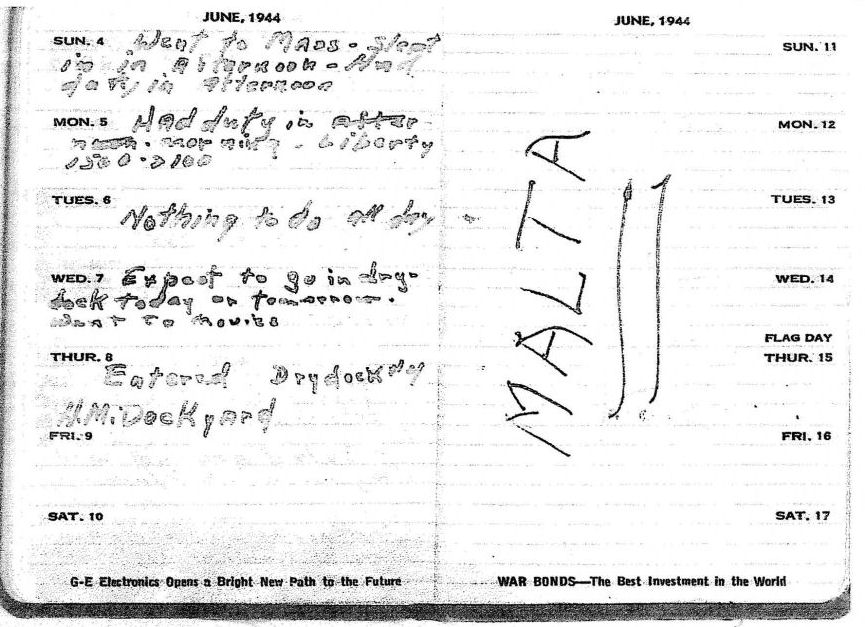 JUNE, 1944
SUN. 4 Went to Mass - Slept
in in Afternoon - Had
duty in afternoon
MON. 5 Had duty in after
noon. morning - Liberty
TUES. 6
Nothing to do all day -
WED. 7 Expect to go in dry-
dock today or tomorrow.
Went to movies
THUR. 8
Entered Drydock
H.M. Dockyard
FRI. 9
SAT. 10
G-E Electronics Opens a Bright New Path to the Future
JUNE, 1944
SUN. 11
MON. 12
TUES. 13
WED. 14
FLAG DAY
THUR. 15
FRI. 16
SAT. 17
MALTA
WAR BONDS—The Best Investment in the World